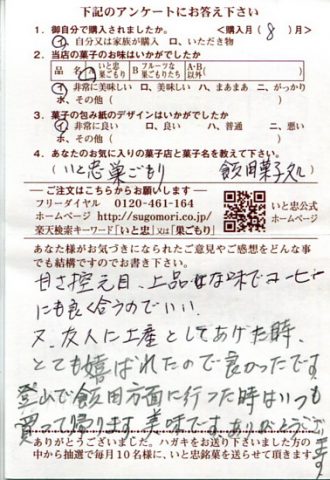 下記のアンケートにお答え下さい
1. 御自分で購入されましたか。 〈購入月( 8 )月〉
イ、自分又は家族が購入 ロ、いただき物
2. 当店の菓子のお味はいかがでしたか
品 名 A いと忠巣ごもり B フルーツな巣ごもりたち A・B以外( )
イ、非常に美味しい ロ、美味しい ハ、まあまあ ニ、がっかり
ホ、その他( )
3. 菓子の包み紙のデザインはいかがでしたか
イ、非常に良い ロ、良い ハ、普通 ニ、悪い
ホ、その他( )
4. あなたのお気に入りの菓子店と菓子名を教えて下さい。
(いと忠 巣ごもり 飯田菓子処)
―ご注文はこちらからお願いします―
フリーダイヤル 0120-461-164
ホームページ http://sugomori.co.jp/
楽天検索キーワード「いと忠」又は「巣ごもり」
いと忠公式
ホームページ
あなた様がお気づきになられたご意見やご感想をどんな事
でも結構ですのでお書き下さい。
甘さ控え目、上品な味でコーヒー
にも良く合うのでいい。
又、友人に土産としてあげた時、
とても嬉ばれたので良かったです
登山で飯田方面に行った時はいつも
買って帰ります 美味です。ありがとうございます
ありがとうございました。ハガキをお送り下さいました方の
中から抽選で毎月10名様に、いと忠銘菓を送らせて頂きます。